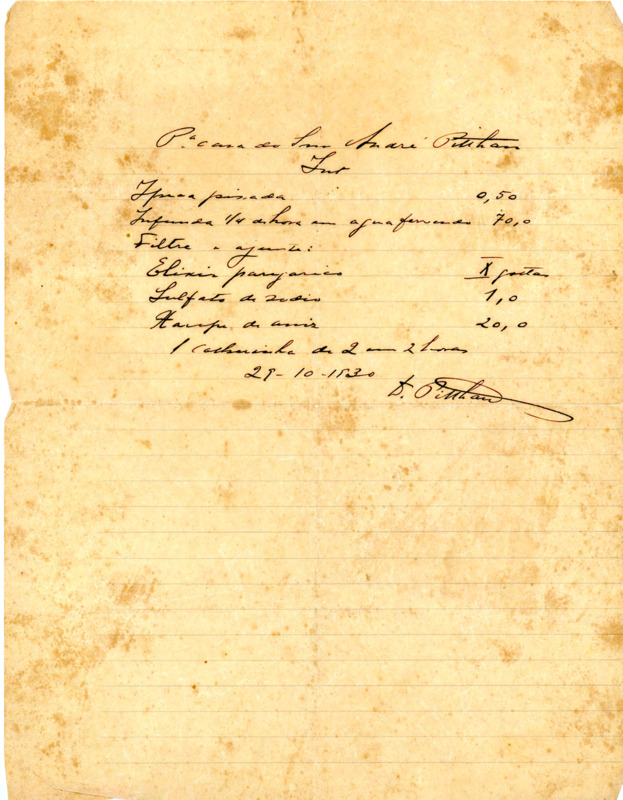 Pª casa do Snr André Pitthan
Int
Ipeca pisada 0,50
Infunda 1/4 de hora em agua fervendo 70,0
Filtre e ajunte:
Elixir paregorico X gottas
Sulfato de sodio 1,0
Xarope de aniz 20,0
1 Colherinha de 2 em 2 horas
29-10-1930
D. Pitthan